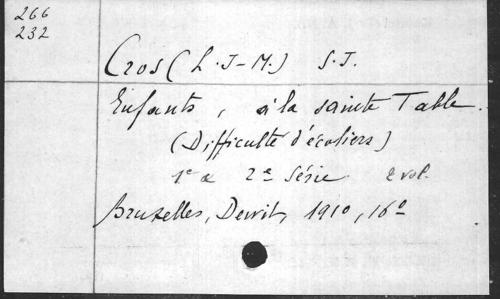 266
232
Cros (L.J-M.) S.J.
Enfants, à la sainte Table.
(Difficulté d'écoliers)
1e & 2e série 2 vol.
Bruxelles, Dewit, 1910, 16o